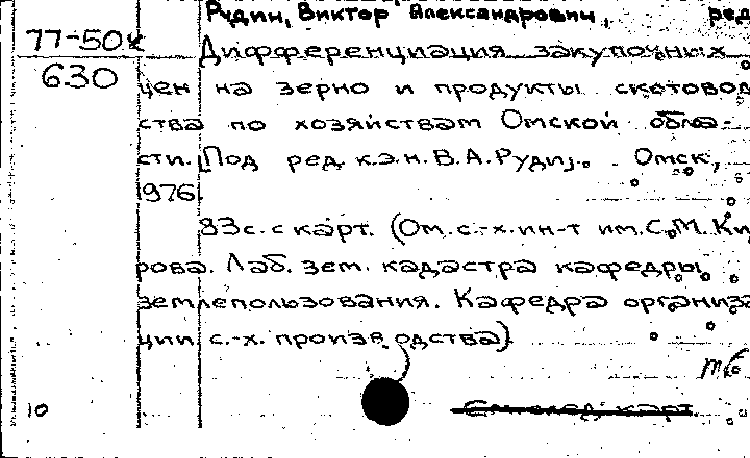 Рудин, Виктор Александрович, ред
77-50к
Дифференциация закупочных
630
цен на зерно и продукты скотовод
ства по хозяйствам Омской обла-
сти. [Под ред. к.э.н. В.А.Рудин]. Омск,
1976
83с. с карт. (Ом. с.-х. ин-т им. С.М. Ки
рова. Лаб. зем. кадастра кафедры
землепользования. Кафедра организа
ции с.-х. производства).
10